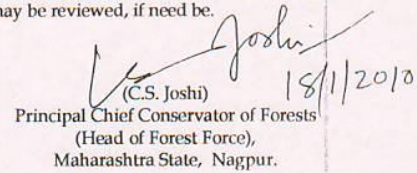 may be reviewed, if need be.
Joshi
18/1/2010
(C.S. Joshi)
Principal Chief Conservator of Forests
(Head of Forest Force),
Maharashtra State, Nagpur.